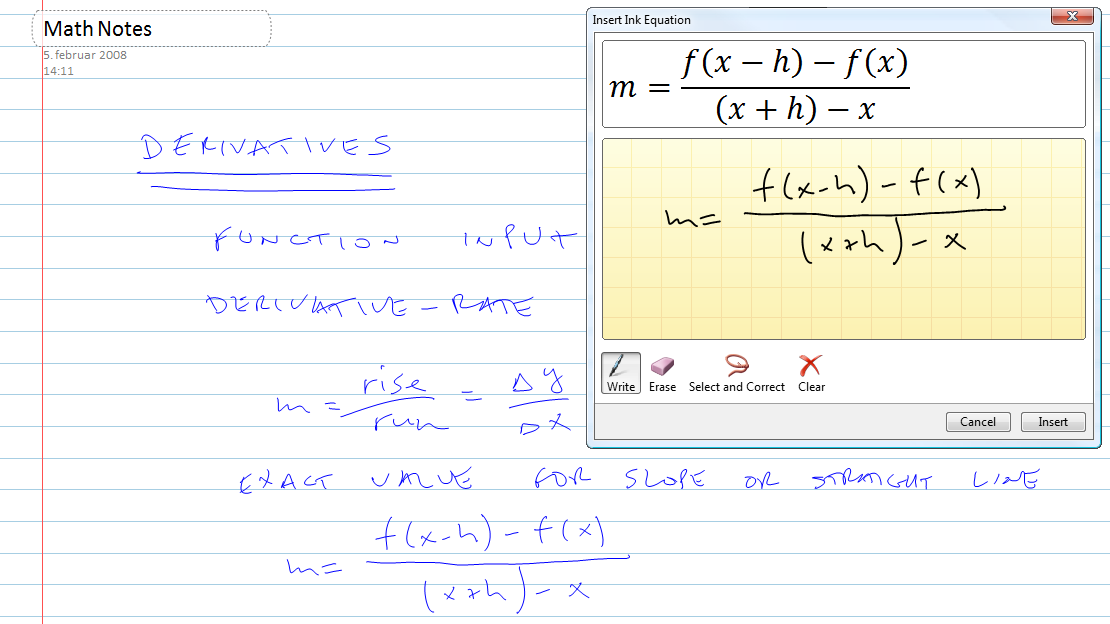 Math Notes
5. februar 2008
14:11
DERIVATIVES
FUNCTION INPUT
DERIVATIVE - RATE
m = rise/run = Δy/Δx
EXACT VALUE FOR SLOPE OR STRAIGHT LINE
m = f(x-h) - f(x)/(x+h) - x
Insert Ink Equation
m = f(x − h) − f(x)/(x + h) − x
m = f(x-h) - f(x)/(x+h) - x
Write Erase Select and Correct Clear
Cancel Insert